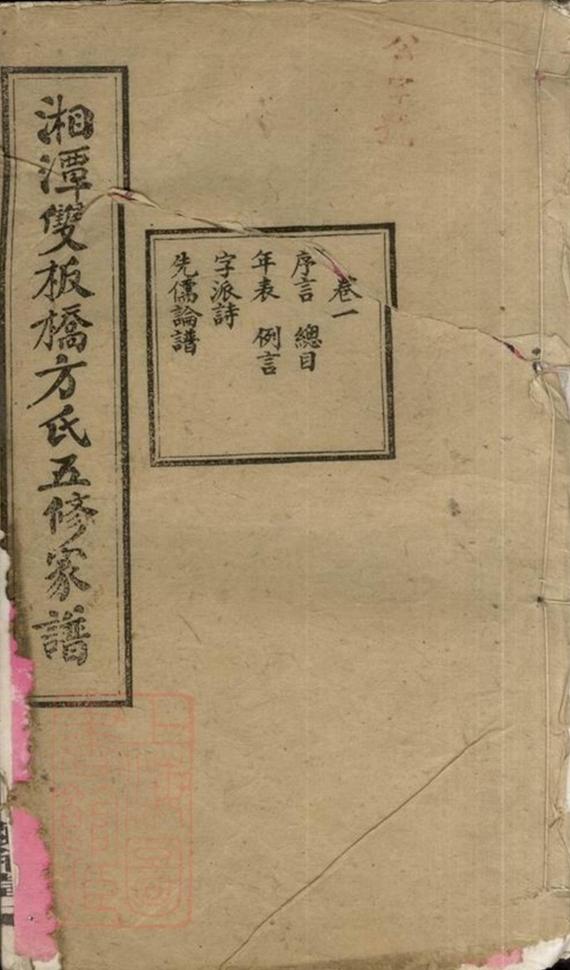 公字號
卷一
序言 總目
年表 例言
字派詩
先儒論譜
湘潭雙板橋方氏五修家譜